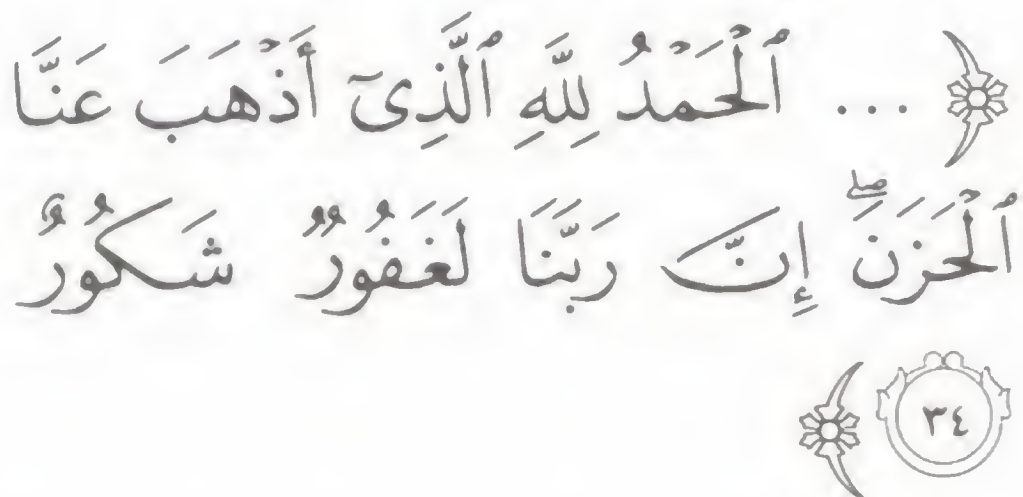 ﴿ ... ٱلْحَمْدُ لِلَّهِ ٱلَّذِىٓ أَذْهَبَ عَنَّا
ٱلْحَزَنَ ۖ إِنَّ رَبَّنَا لَغَفُورٌ شَكُورٌ
٣٤ ﴾